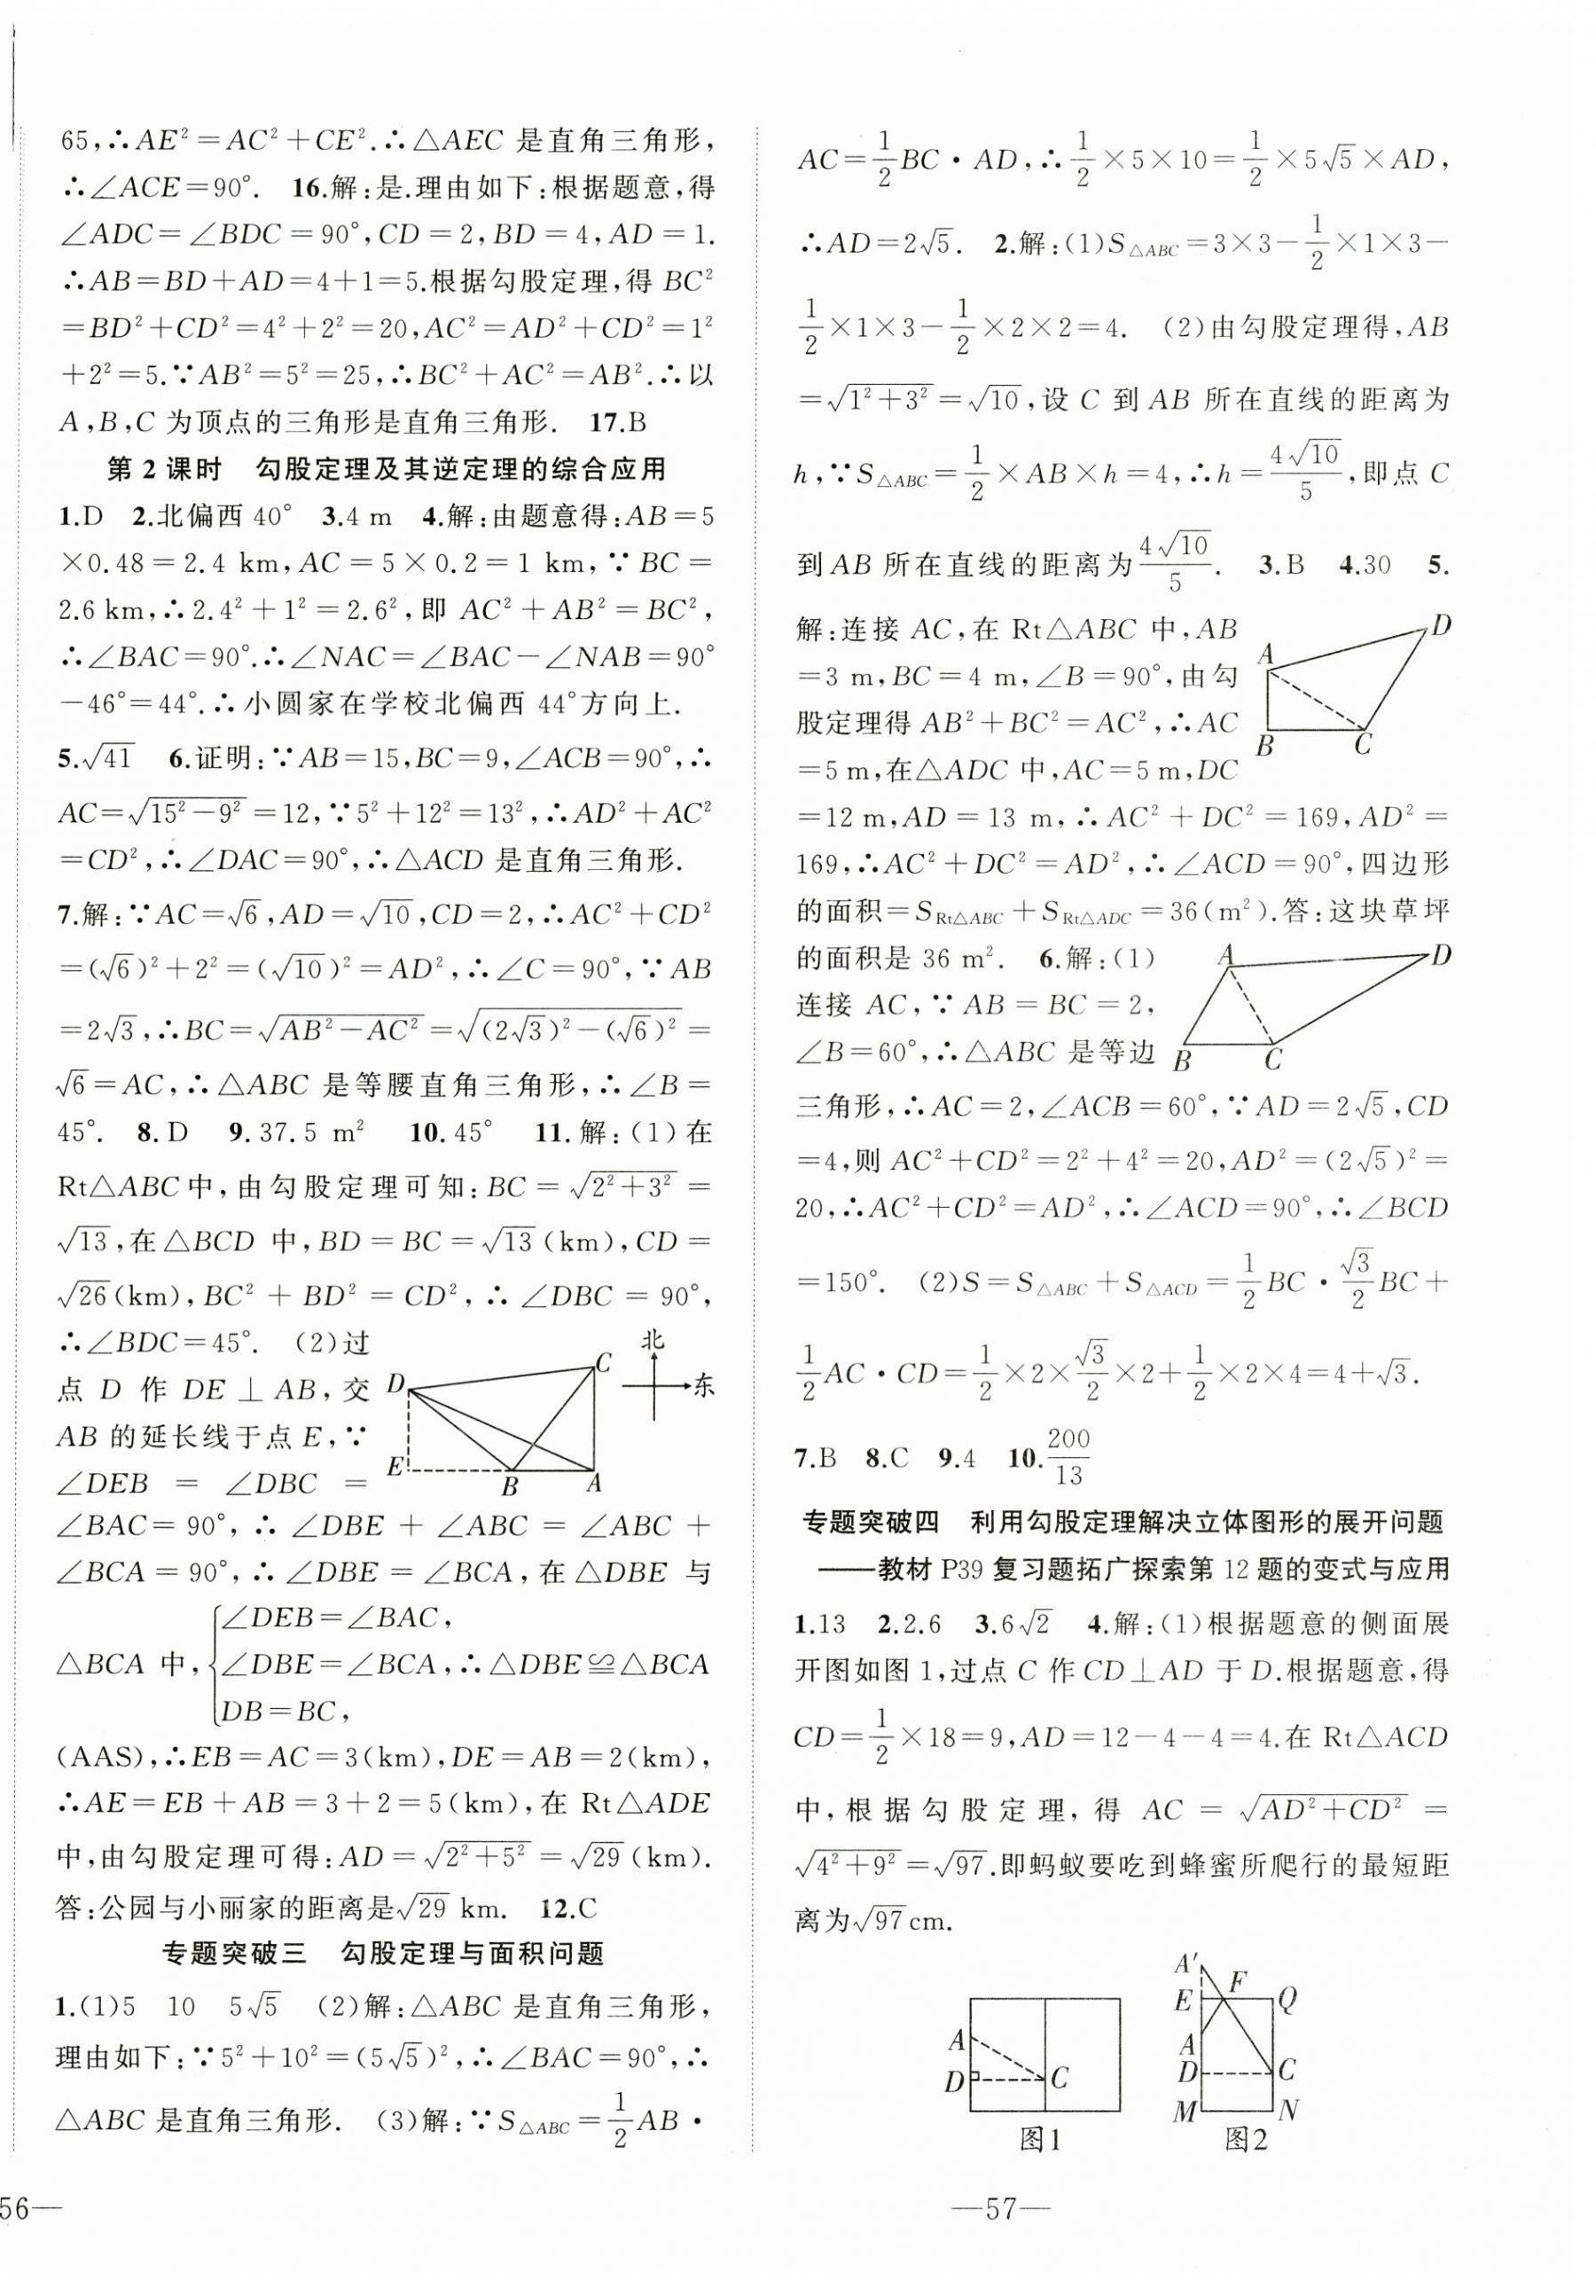 65,∴AE²=AC²+CE².∴△AEC 是直角三角形,
∴∠ACE=90°. 16.解:是.理由如下:根据题意,得
∠ADC=∠BDC=90°,CD=2,BD=4,AD=1.
∴AB=BD+AD=4+1=5.根据勾股定理,得 BC²
=BD²+CD²=4²+2²=20,AC²=AD²+CD²=1²
+2²=5.∵AB²=5²=25,∴BC²+AC²=AB².∴以
A,B,C 为顶点的三角形是直角三角形. 17.B
第 2 课时 勾股定理及其逆定理的综合应用
1.D 2.北偏西 40° 3.4 m 4.解:由题意得:AB=5
×0.48=2.4 km,AC=5×0.2=1 km,∵BC=
2.6 km,∴2.4²+1²=2.6²,即 AC²+AB²=BC²,
∴∠BAC=90°.∴∠NAC=∠BAC-∠NAB=90°
-46°=44°.∴小圆家在学校北偏西 44°方向上.
5.√41 6.证明:∵AB=15,BC=9,∠ACB=90°,∴
AC=√(15²-9²)=12,∵5²+12²=13²,∴AD²+AC²
=CD²,∴∠DAC=90°,∴△ACD 是直角三角形.
7.解:∵AC=√6,AD=√10,CD=2,∴AC²+CD²
=(√6)²+2²=(√10)²=AD²,∴∠C=90°,∵AB
=2√3,∴BC=√(AB²-AC²)=√((2√3)²-(√6)²)=
√6=AC,∴△ABC 是等腰直角三角形,∴∠B=
45°. 8.D 9.37.5 m² 10.45° 11.解:(1)在
Rt△ABC中,由勾股定理可知:BC=√(2²+3²)=
√13,在△BCD 中,BD=BC=√13(km),CD=
√26(km),BC²+BD²=CD²,∴∠DBC=90°,
∴∠BDC=45°. (2)过
点 D 作 DE⊥AB,交
AB 的延长线于点 E,∵
∠DEB = ∠DBC =
D C 北 东 E B A
∠BAC=90°,∴∠DBE+∠ABC=∠ABC+
∠BCA=90°,∴∠DBE=∠BCA,在△DBE 与
∠DEB=∠BAC,
△BCA 中,{∠DBE=∠BCA,∴△DBE≌△BCA
DB=BC,
(AAS),∴EB=AC=3(km),DE=AB=2(km),
∴AE=EB+AB=3+2=5(km),在 Rt△ADE
中,由勾股定理可得:AD=√(2²+5²)=√29(km).
答:公园与小丽家的距离是√29 km. 12.C
专题突破三 勾股定理与面积问题
1.(1)5 10 5√5 (2)解:△ABC 是直角三角形,
理由如下:∵5²+10²=(5√5)²,∴∠BAC=90°,∴
△ABC 是直角三角形. (3)解:∵S△ABC=1/2AB·
56—
AC=1/2BC·AD,∴1/2×5×10=1/2×5√5×AD,
∴AD=2√5. 2.解:(1)S△ABC=3×3-1/2×1×3-
1/2×1×3-1/2×2×2=4. (2)由勾股定理得,AB
=√(1²+3²)=√10,设 C 到 AB 所在直线的距离为
h,∵S△ABC=1/2×AB×h=4,∴h=4√10/5,即点 C
到AB 所在直线的距离为4√10/5. 3.B 4.30 5.
解:连接 AC,在 Rt△ABC 中,AB
=3 m,BC=4 m,∠B=90°,由勾
股定理得 AB²+BC²=AC²,∴AC
=5 m,在△ADC 中,AC=5 m,DC
A D B C
=12 m,AD=13 m,∴AC²+DC²=169,AD²=
169,∴AC²+DC²=AD²,∴∠ACD=90°,四边形
的面积=SRt△ABC+SRt△ADC=36(m²).答:这块草坪
的面积是 36 m². 6.解:(1)
连接 AC,∵AB=BC=2,
∠B=60°,∴△ABC 是等边
A D B C
三角形,∴AC=2,∠ACB=60°,∵AD=2√5,CD
=4,则 AC²+CD²=2²+4²=20,AD²=(2√5)²=
20,∴AC²+CD²=AD²,∴∠ACD=90°,∴∠BCD
=150°. (2)S=S△ABC+S△ACD=1/2BC·√3/2BC+
1/2AC·CD=1/2×2×√3/2×2+1/2×2×4=4+√3.
7.B 8.C 9.4 10.200/13
专题突破四 利用勾股定理解决立体图形的展开问题
——教材 P39 复习题拓广探索第 12 题的变式与应用
1.13 2.2.6 3.6√2 4.解:(1)根据题意的侧面展
开图如图 1,过点 C 作 CD⊥AD 于 D.根据题意,得
CD=1/2×18=9,AD=12-4-4=4.在 Rt△ACD
中,根据勾股定理,得 AC=√(AD²+CD²)=
√(4²+9²)=√97.即蚂蚁要吃到蜂蜜所爬行的最短距
离为√97cm.
A D C
图1
A′ F E Q A D C M N
图2
—57—